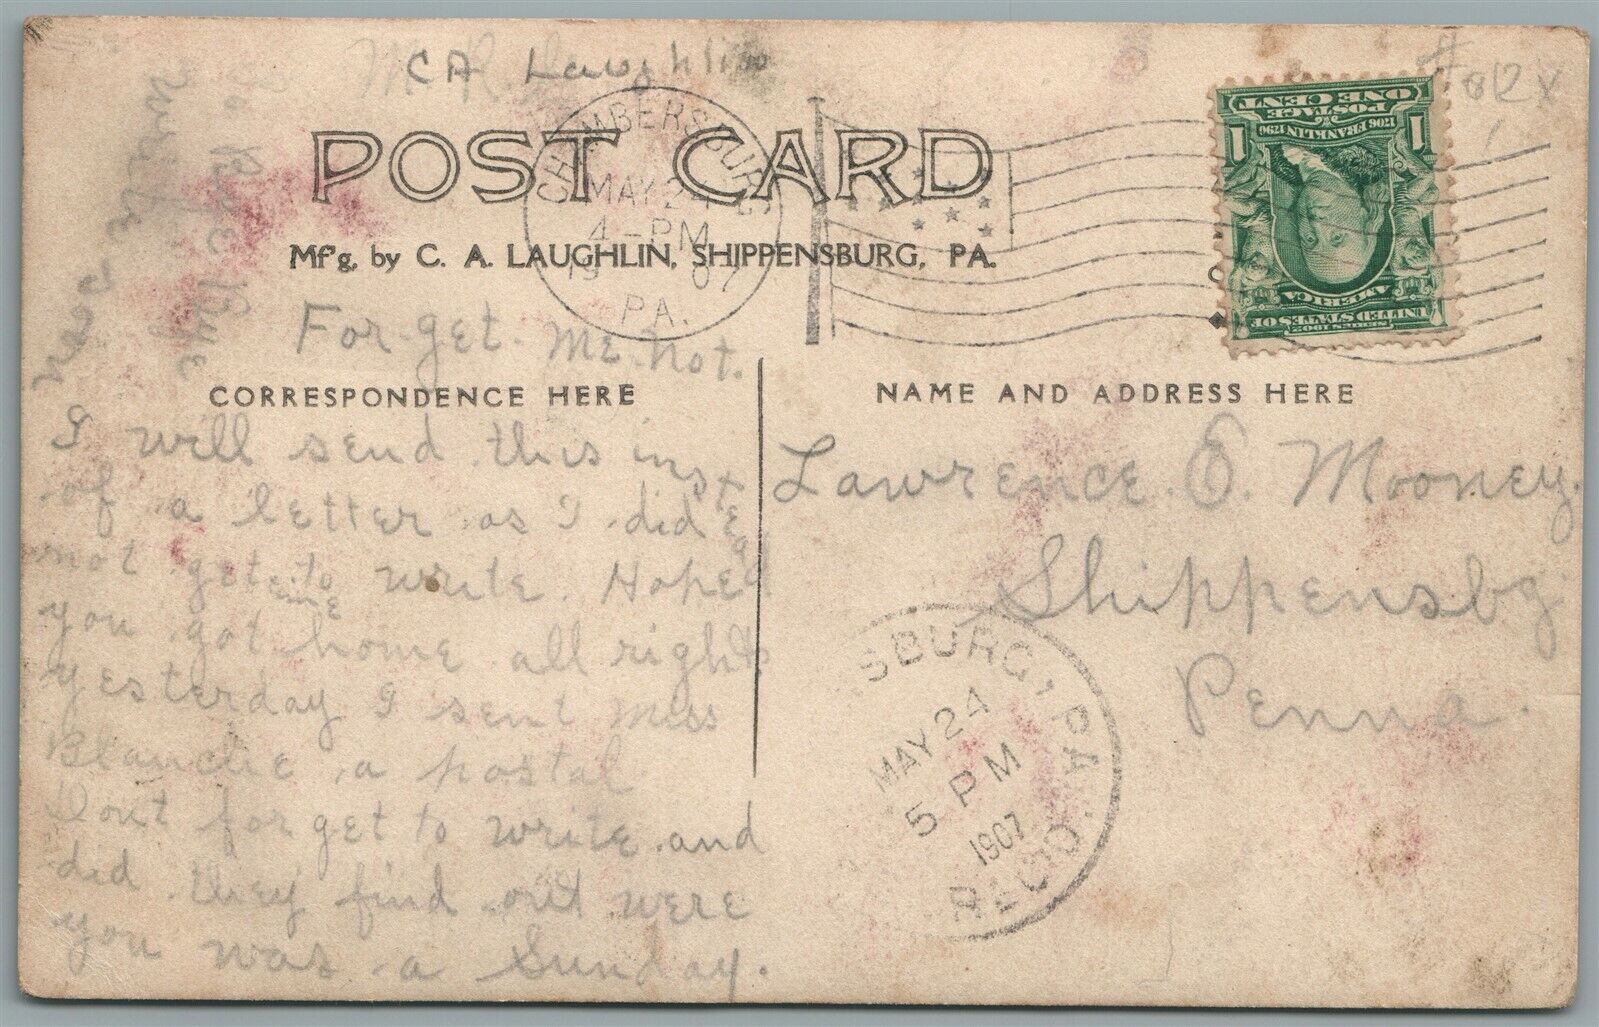 CA Laughlin
CHAMBERSBURG
MAY 24
4-PM
19 07
PA.
POST CARD
Mf'g. by C. A. LAUGHLIN, SHIPPENSBURG, PA.
1 1
POSTAGE
ONE CENT
1706 FRANKLIN 1790
SERIES 1902
UNITED STATES OF
AMERICA
For-get-Me-Not.
CORRESPONDENCE HERE
NAME AND ADDRESS HERE
I will send this inste
of a letter as I did
not get time to write. Hope
you got home all right
yesterday I sent Miss
Blanche a postal
Dont forget to write and
did they find out were
you was a Sunday.
Lawrence E. Mooney.
Shippensbg
Penna.
SBURG, PA.
MAY 24
5 PM
1907
REC'D